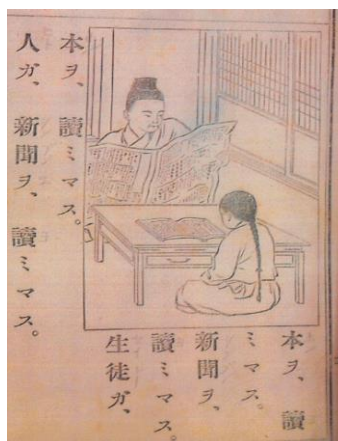 本ヲ、讀
ミマス。
新聞ヲ、
讀ミマス。
生徒ガ、
本ヲ、讀ミマス。
人ガ、新聞ヲ、讀ミマス。